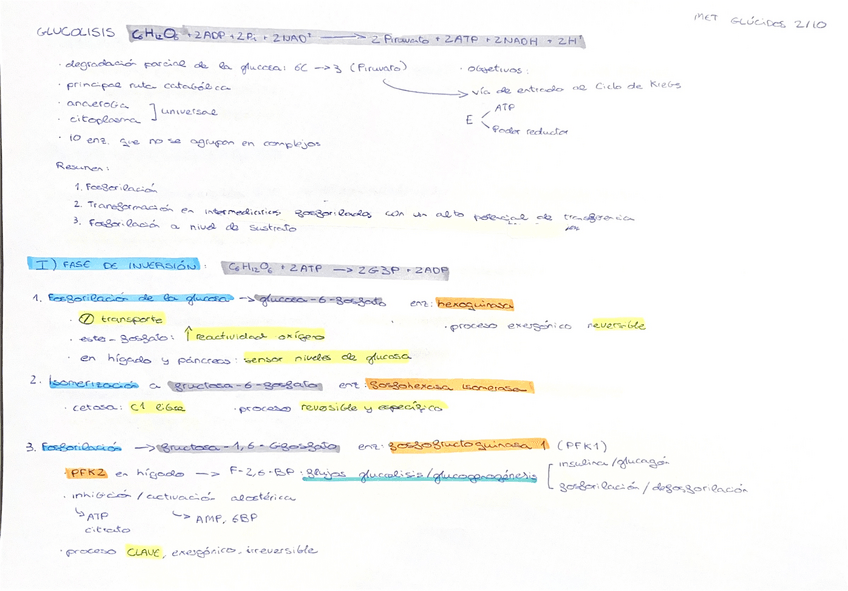 MET GLÚCIDOS 2/10
GLUCOLISIS C6H12O6 + 2ADP + 2Pi + 2NAD+ → 2 Piruvato + 2ATP + 2NADH + 2H+
· degradación parcial de la glucosa: 6C → 3 (Piruvato) · Objetivos:
· principal ruta catabólica → vía de entrada al Ciclo de Krebs
· anaerobia
· citoplasma ] universal E < ATP
Poder reductor
· 10 enz. que no se agrupan en complejos
Resumen:
1. Fosforilación
2. Transformación en intermediarios fosforilados con un alto potencial de transferencia
3. Fosforilación a nivel de sustrato
I) FASE DE INVERSIÓN: C6H12O6 + 2ATP → 2G3P + 2ADP
1. Fosforilación de la glucosa → glucosa-6-fosfato enz: hexoquinasa
· transporte · proceso exergónico reversible
· ester-fosfato: ↑ reactividad oxígeno
· en hígado y páncreas: sensor niveles de glucosa
2. Isomerización a fructosa-6-fosfato enz: fosfohexosa isomerasa
· cetosa: C1 libre · proceso reversible y específico
3. Fosforilación → fructosa-1,6-bifosfato enz: fosfofructoquinasa 1 (PFK1)
PFK2 en hígado → F-2,6-BP: flujos glucolisis/glucogenogénesis [ insulina/glucagón
fosforilación/desfosforilación
· inhibición/activación alostérica
↳ ATP ↳ AMP, 6BP
citrato
· proceso CLAVE, exergónico, irreversible